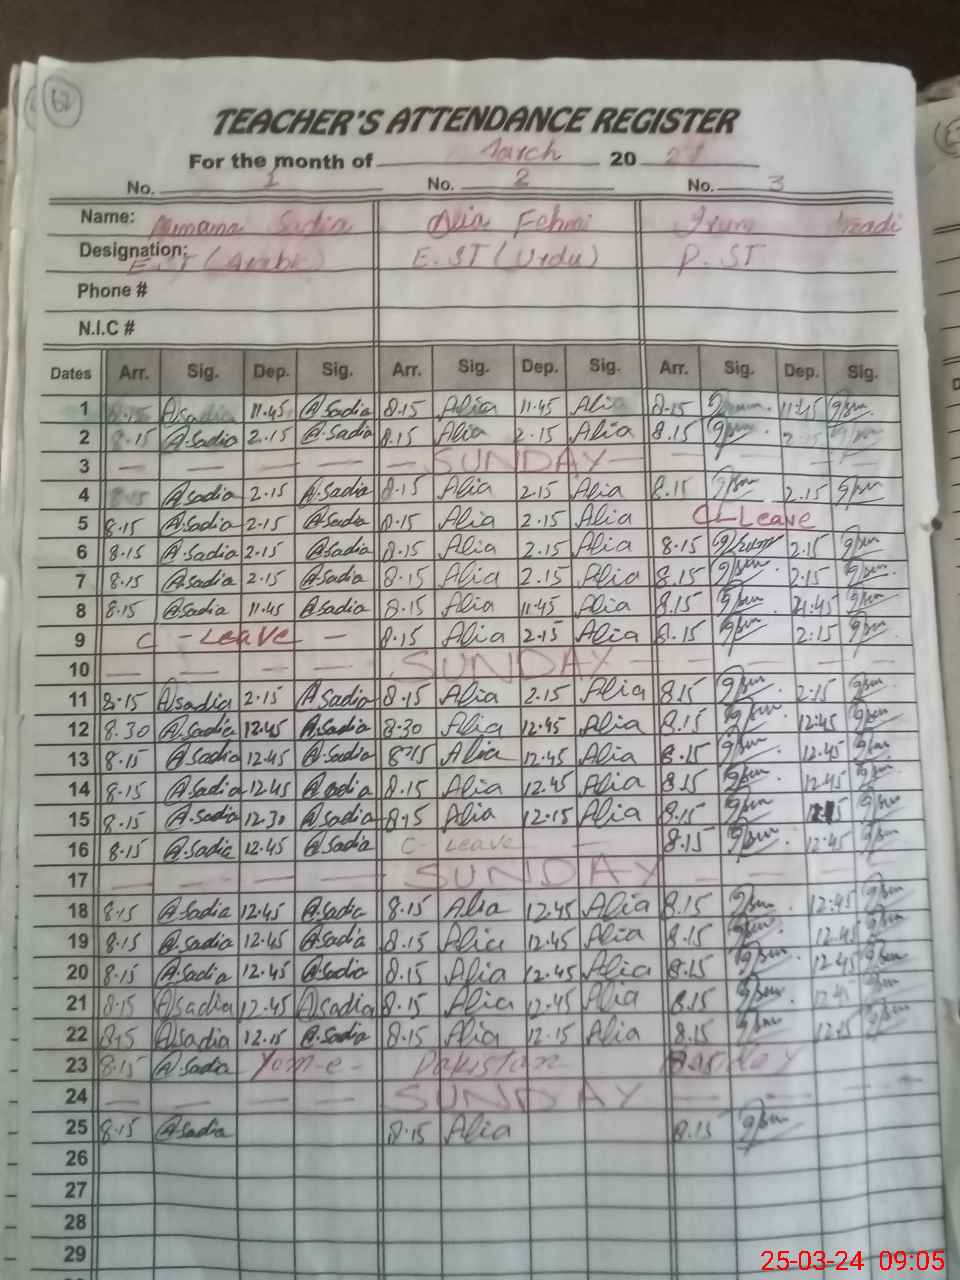 TEACHER'S ATTENDANCE REGISTER
For the month of March 20
No. 1 No. 2 No. 3
Name: Sadia Alia Fehmi Irum
Designation: E.ST (Arabic) E.ST (Urdu) P.ST
Phone #
N.I.C #
Dates Arr. Sig. Dep. Sig. Arr. Sig. Dep. Sig. Arr. Sig. Dep. Sig.
1 8.15 A.Sadia 11.45 A.Sadia 8.15 Alia 11.45 Alia 8.15 11.45
2 8.15 A.Sadia 2.15 A.Sadia 8.15 Alia 2.15 Alia 8.15 2.15
3 — — — — — SUNDAY —
4 8.15 A.Sadia 2.15 A.Sadia 8.15 Alia 2.15 Alia 8.15 2.15
5 8.15 A.Sadia 2.15 A.Sadia 8.15 Alia 2.15 Alia C-Leave
6 8.15 A.Sadia 2.15 A.Sadia 8.15 Alia 2.15 Alia 8.15 2.15
7 8.15 A.Sadia 2.15 A.Sadia 8.15 Alia 2.15 Alia 8.15 2.15
8 8.15 A.Sadia 11.45 A.Sadia 8.15 Alia 11.45 Alia 8.15 11.45
9 C - Leave — 8.15 Alia 2.15 Alia 8.15 2:15
10 — — — — SUNDAY — — — —
11 8.15 A.Sadia 2.15 A.Sadia 8.15 Alia 2.15 Alia 8.15 2.15
12 8.30 A.Sadia 12.45 A.Sadia 8.30 Alia 12.45 Alia 8.15 12.45
13 8.15 A.Sadia 12.45 A.Sadia 8.15 Alia 12.45 Alia 8.15 12.45
14 8.15 A.Sadia 12.45 A.Sadia 8.15 Alia 12.45 Alia 8.15 12.45
15 8.15 A.Sadia 12.30 A.Sadia 8.15 Alia 12.15 Alia 8.15
16 8.15 A.Sadia 12.45 A.Sadia C- Leave — 8.15 12.45
17 — — — — SUNDAY — — —
18 8.15 A.Sadia 12.45 A.Sadia 8.15 Alia 12.45 Alia 8.15 12.45
19 8.15 A.Sadia 12.45 A.Sadia 8.15 Alia 12.45 Alia 8.15 12.45
20 8.15 A.Sadia 12.45 A.Sadia 8.15 Alia 12.45 Alia 8.15 12.45
21 8.15 A.Sadia 12.45 A.Sadia 8.15 Alia 12.45 Alia 8.15 12.45
22 8.15 A.Sadia 12.15 A.Sadia 8.15 Alia 12.15 Alia 8.15 12.15
23 8.15 A.Sadia Yom-e- Pakistan
24 — — — — SUNDAY — — — —
25 8.15 A.Sadia 8.15 Alia 8.15
26
27
28
29
25-03-24 09:05